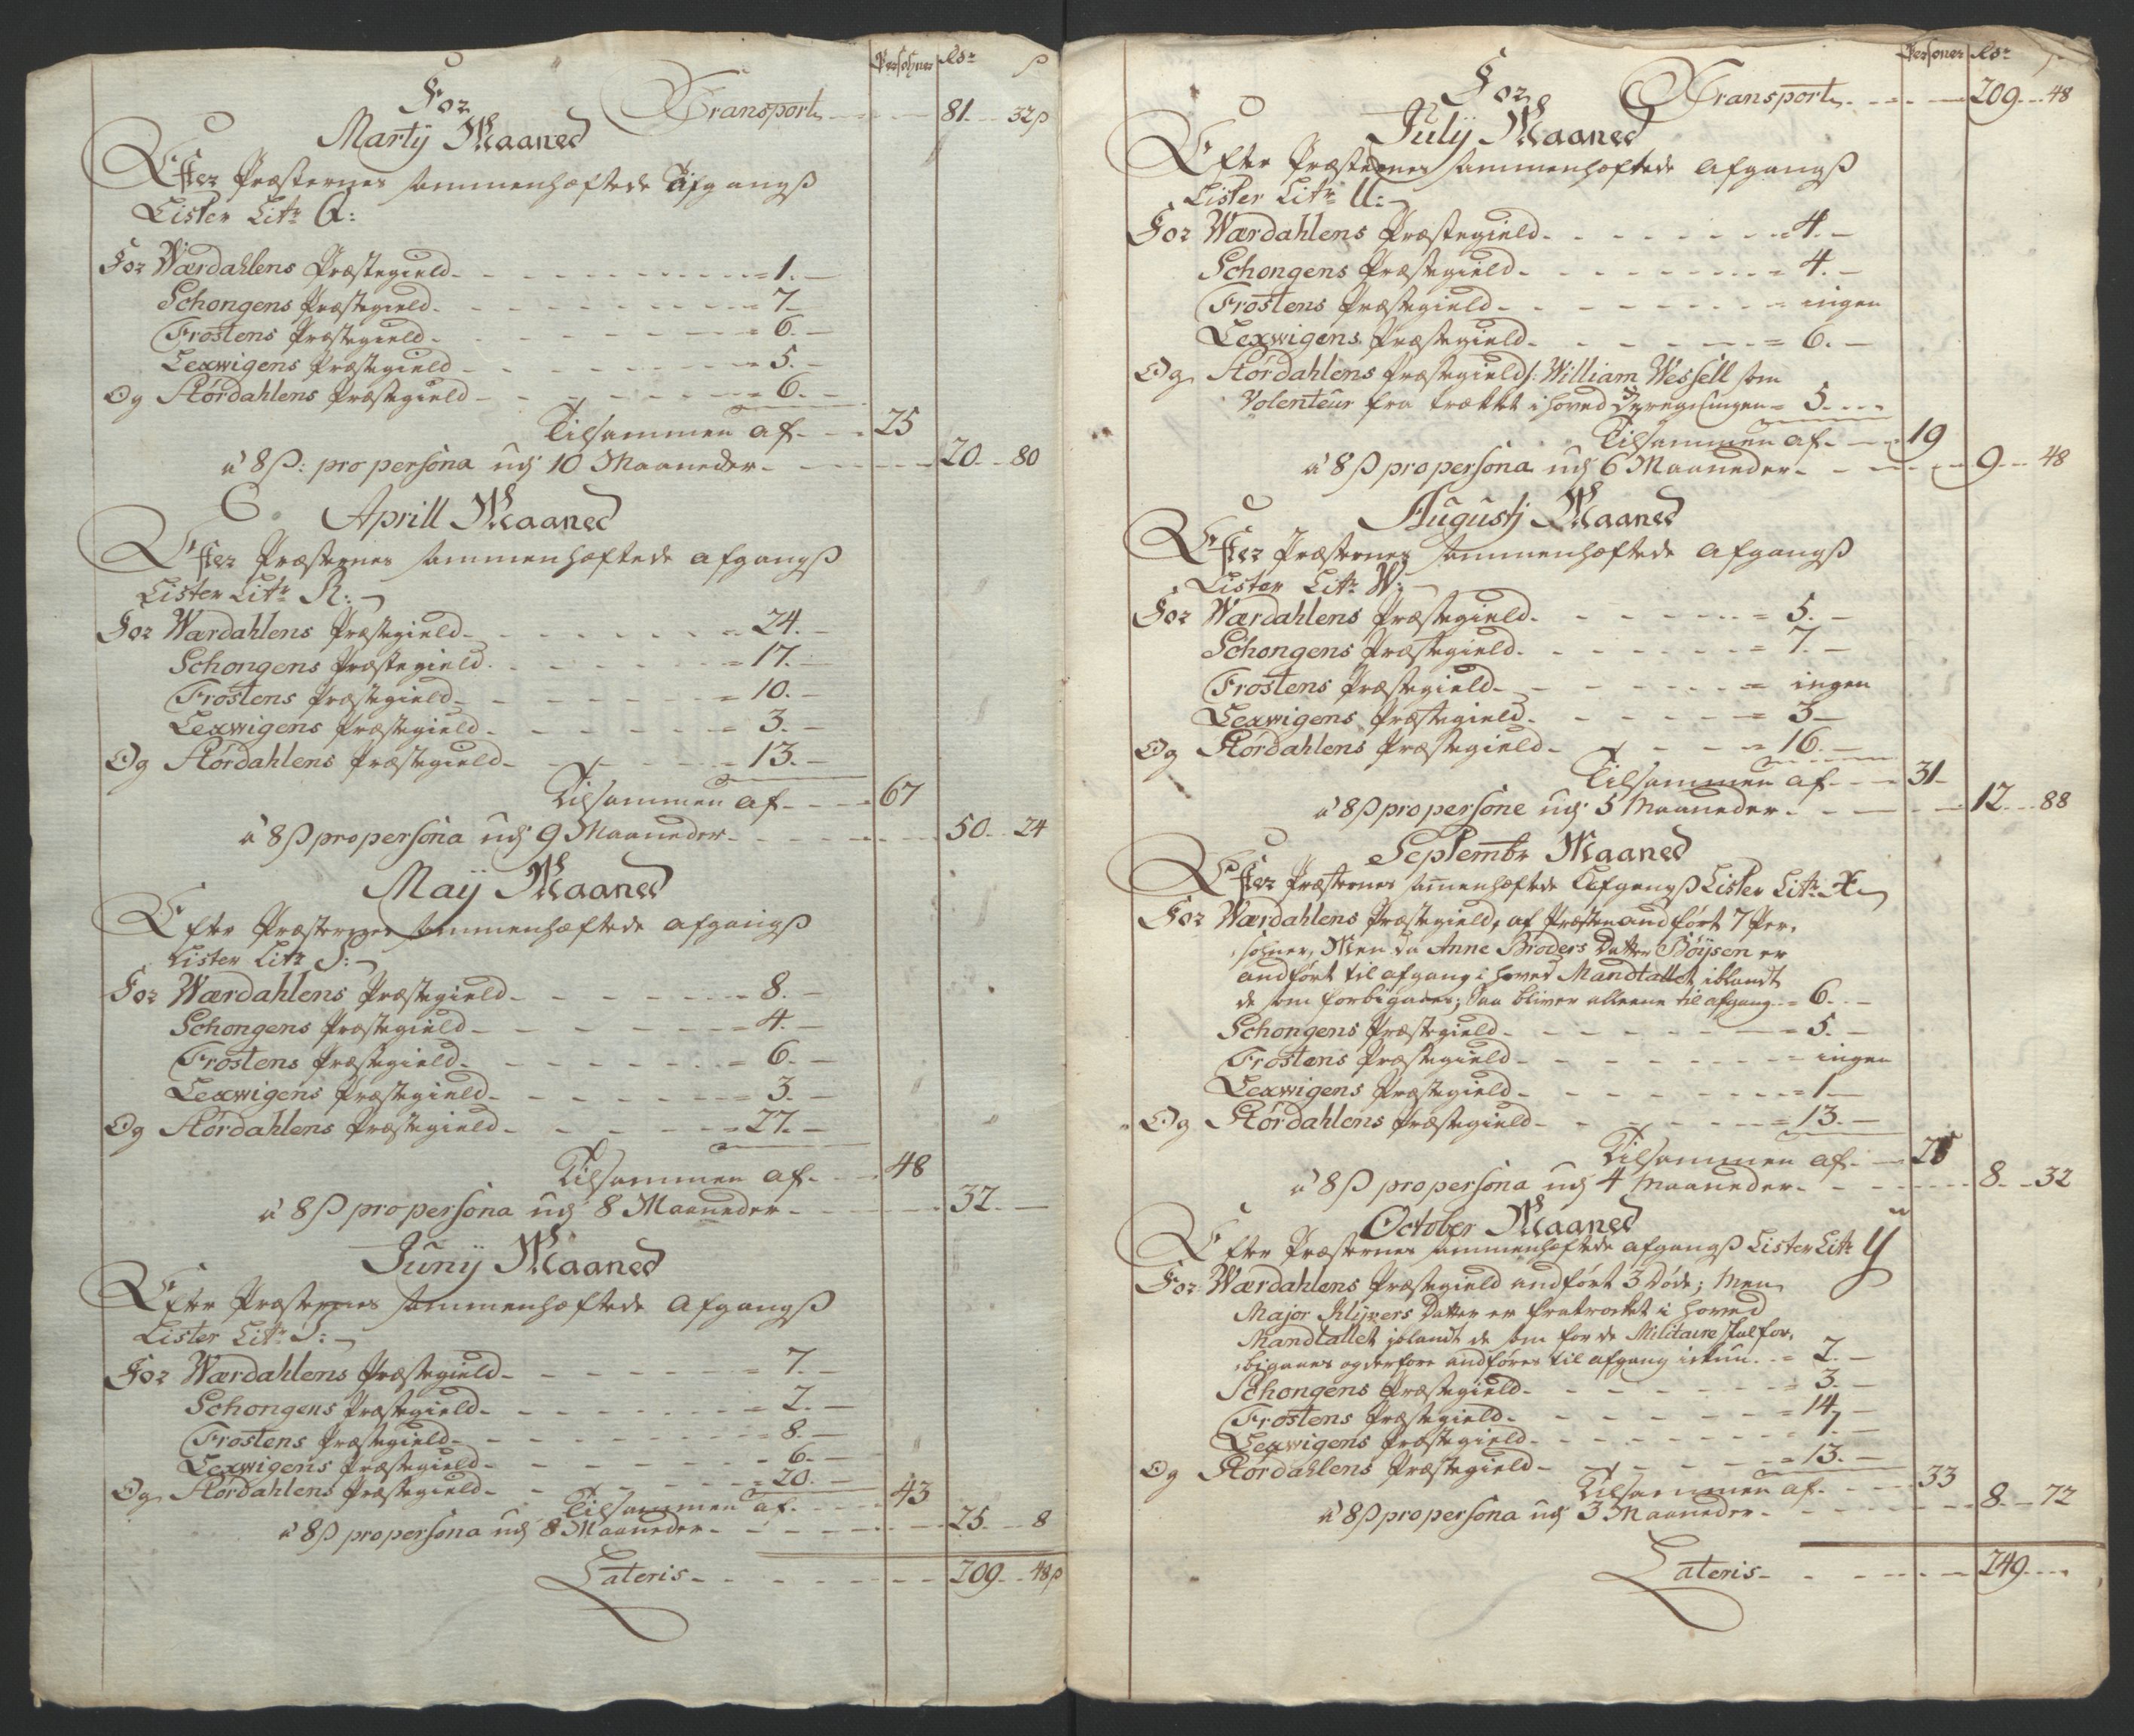 Persohner Rdr ß
For Transport 81 32ß
Martij Maaned
Efter Præsternes sammenhæftede Afgangß
Lister Litr Q:
For Wærdahlens Præstegield 1.
Schongens Præstegield 7
Frostens Præstegield 6.
Lexwigens Præstegield 5.
Og Stördahlens Præstegield 6.
Tilsammen af 25
a 8ß: pro persona udj 10 Maaneder 20 80
Aprill Maaned
Efter Præsternes sammenhæftede afgangß
Lister Litr R:
For Wærdahlens Præstegield 24.
Schongens Præstegield 17.
Frostens Præstegield 10.
Lexwigens Præstegield 3.
Og Stördahlens Præstegield 13.
Tilsammen af 67
a 8ß pro persona udj 9 Maaneder 50 24
Maij Maaned
Efter Præsternes sammenhæftede afgangß
Lister Litr S:
For Wærdahlens Præstegield 8.
Schongens Præstegield 4.
Frostens Præstegield 6.
Lexwigens Præstegield 3.
Og Stördahlens Præstegield 27.
Tilsammen af 48
a 8ß pro persona udj 8 Maaneder 32
Junij Maaned
Efter Præsternes sammenhæftede Afgangß
Lister Litr
For Wærdahlens Præstegield 7.
Schongens Præstegield 2.
Frostens Præstegield 8.
Lexwigens Præstegield 6.
Og Stördahlens Præstegield 20.
Tilsammen af 43
a 8ß pro persona udj 8 Maaneder 25 8
Lateris 209 48ß
Personer Rdr
For Transport 209 48
Julij Maaned
Efter Præsternes sammenhæftede Afgangß
Lister Litr U:
For Wærdahlens Præstegield 4.
Schongens Præstegield 4.
Frostens Præstegield ingen
Lexwigens Præstegield 6.
Og Stördahlens Præstegield /: William Wessell som
Volenteur fra trækket i hoved 5
Tilsammen af 19
a 8ß pro persona udj 6 Maaneder 9 48
Augustj Maaned
Efter Præsternes sammenhæftede Afgangß
Lister Litr W:
For Wærdahlens Præstegield 5.
Schongens Præstegield 7.
Frostens Præstegield ingen
Lexwigens Præstegield 3
Og Stördahlens Præstegield 16.
Tilsammen af 31
a 8ß pro persone udj 5 Maaneder 12 88
Septembr Maaned
Efter Præsternes samenhæftede Afgangß Lister Litr X
For Wærdahlens Præstegield, af Præsten andført 7 Per,
sohner, Men da Anne Broders Datter Böijsen er
andført til afgang i hoved Mandtallet iblandt
de som forbigaaes; Saa bliver alleene til afgang 6.
Schongens Præstegield 5.
Frostens Præstegield ingen
Lexwigens Præstegield 1
Og Stördahlens Præstegield 13.
Tilsammen af 25
a 8ß pro persona udj 4 Maaneder 8 32
October Maaned
Efter Præsternes sammenhæftede afgangß Lister Litr Y
For Wærdahlens Præstegield andført 3 Döde; Men
Major Klüvers Datter er fratrækket i hoved
Mandtallet iblandt de som for de Militaire skal for,
bigaaes og derfore andføres til afgang ickun 2.
Schongens Præstegield 3.
Frostens Præstegield 14
Lexwigens Præstegield 1.
Og Stördahlens Præstegield 13.
Tilsammen af 33
a 8ß pro persona udj 3 Maaneder 8 72
Lateris 249